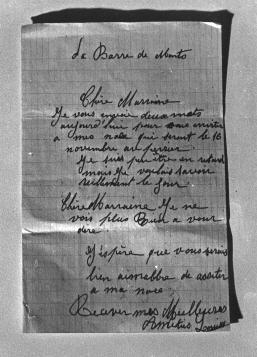 La Barre de Monts
Chère Marraine
Je vous envoie deux mots
aujourd'hui pour vous inviter
à mes noce qui seront le 16
novembre au
Je suis peu être en retard
mais je voulais savoir
réellement le jour.
Chère Marraine je ne
vois plus Rien a vous
dire.
J'éspère que vous serais
bien aimabble de assiter
a ma noce.
Recever mes Meilleures
Amitiés